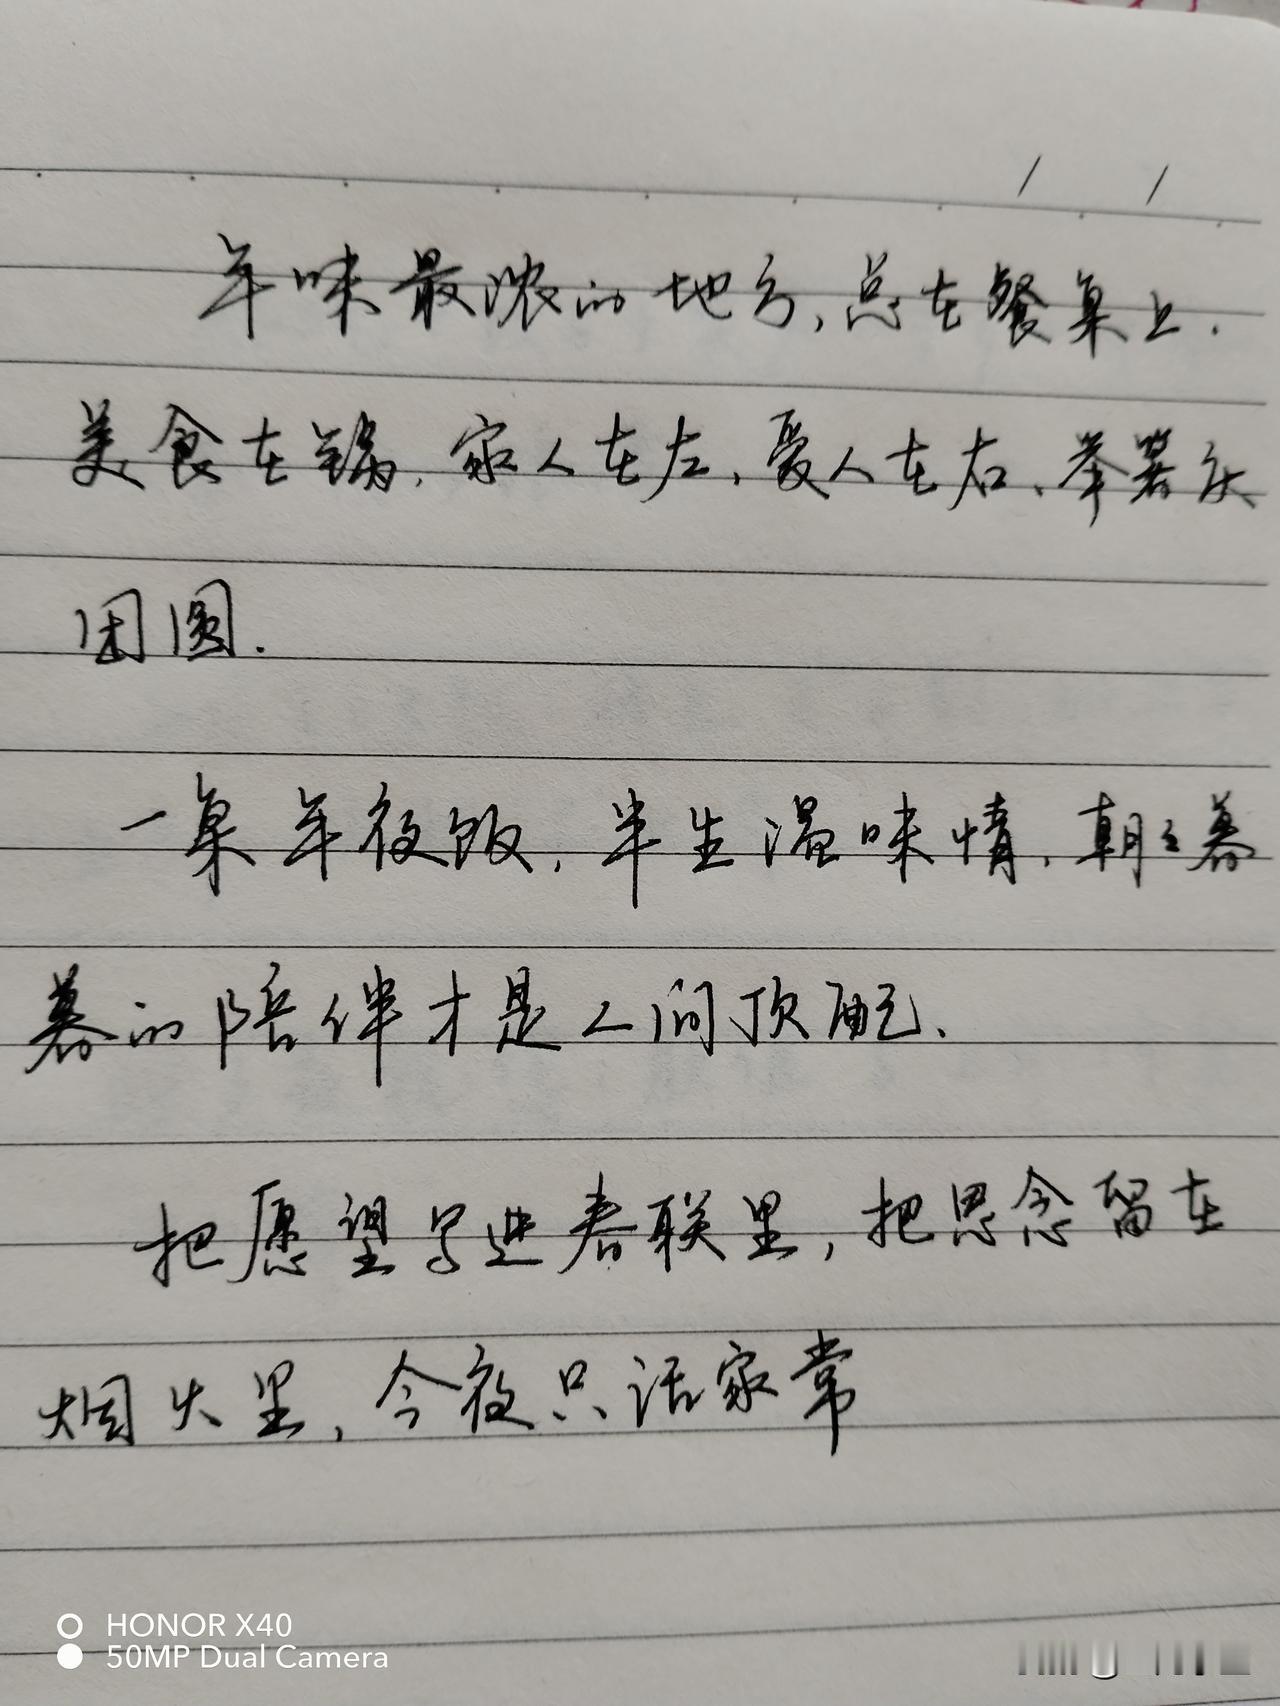 年味最浓的地方,总在餐桌上.
美食在锅,家人在左,爱人在右、举箸庆
团圆.
一桌年夜饭,半生温味情,朝之暮
暮的陪伴才是人间顶配、
把愿望写进春联里,把思念留在
烟火里,今夜只话家常
HONOR X40
50MP Dual Camera